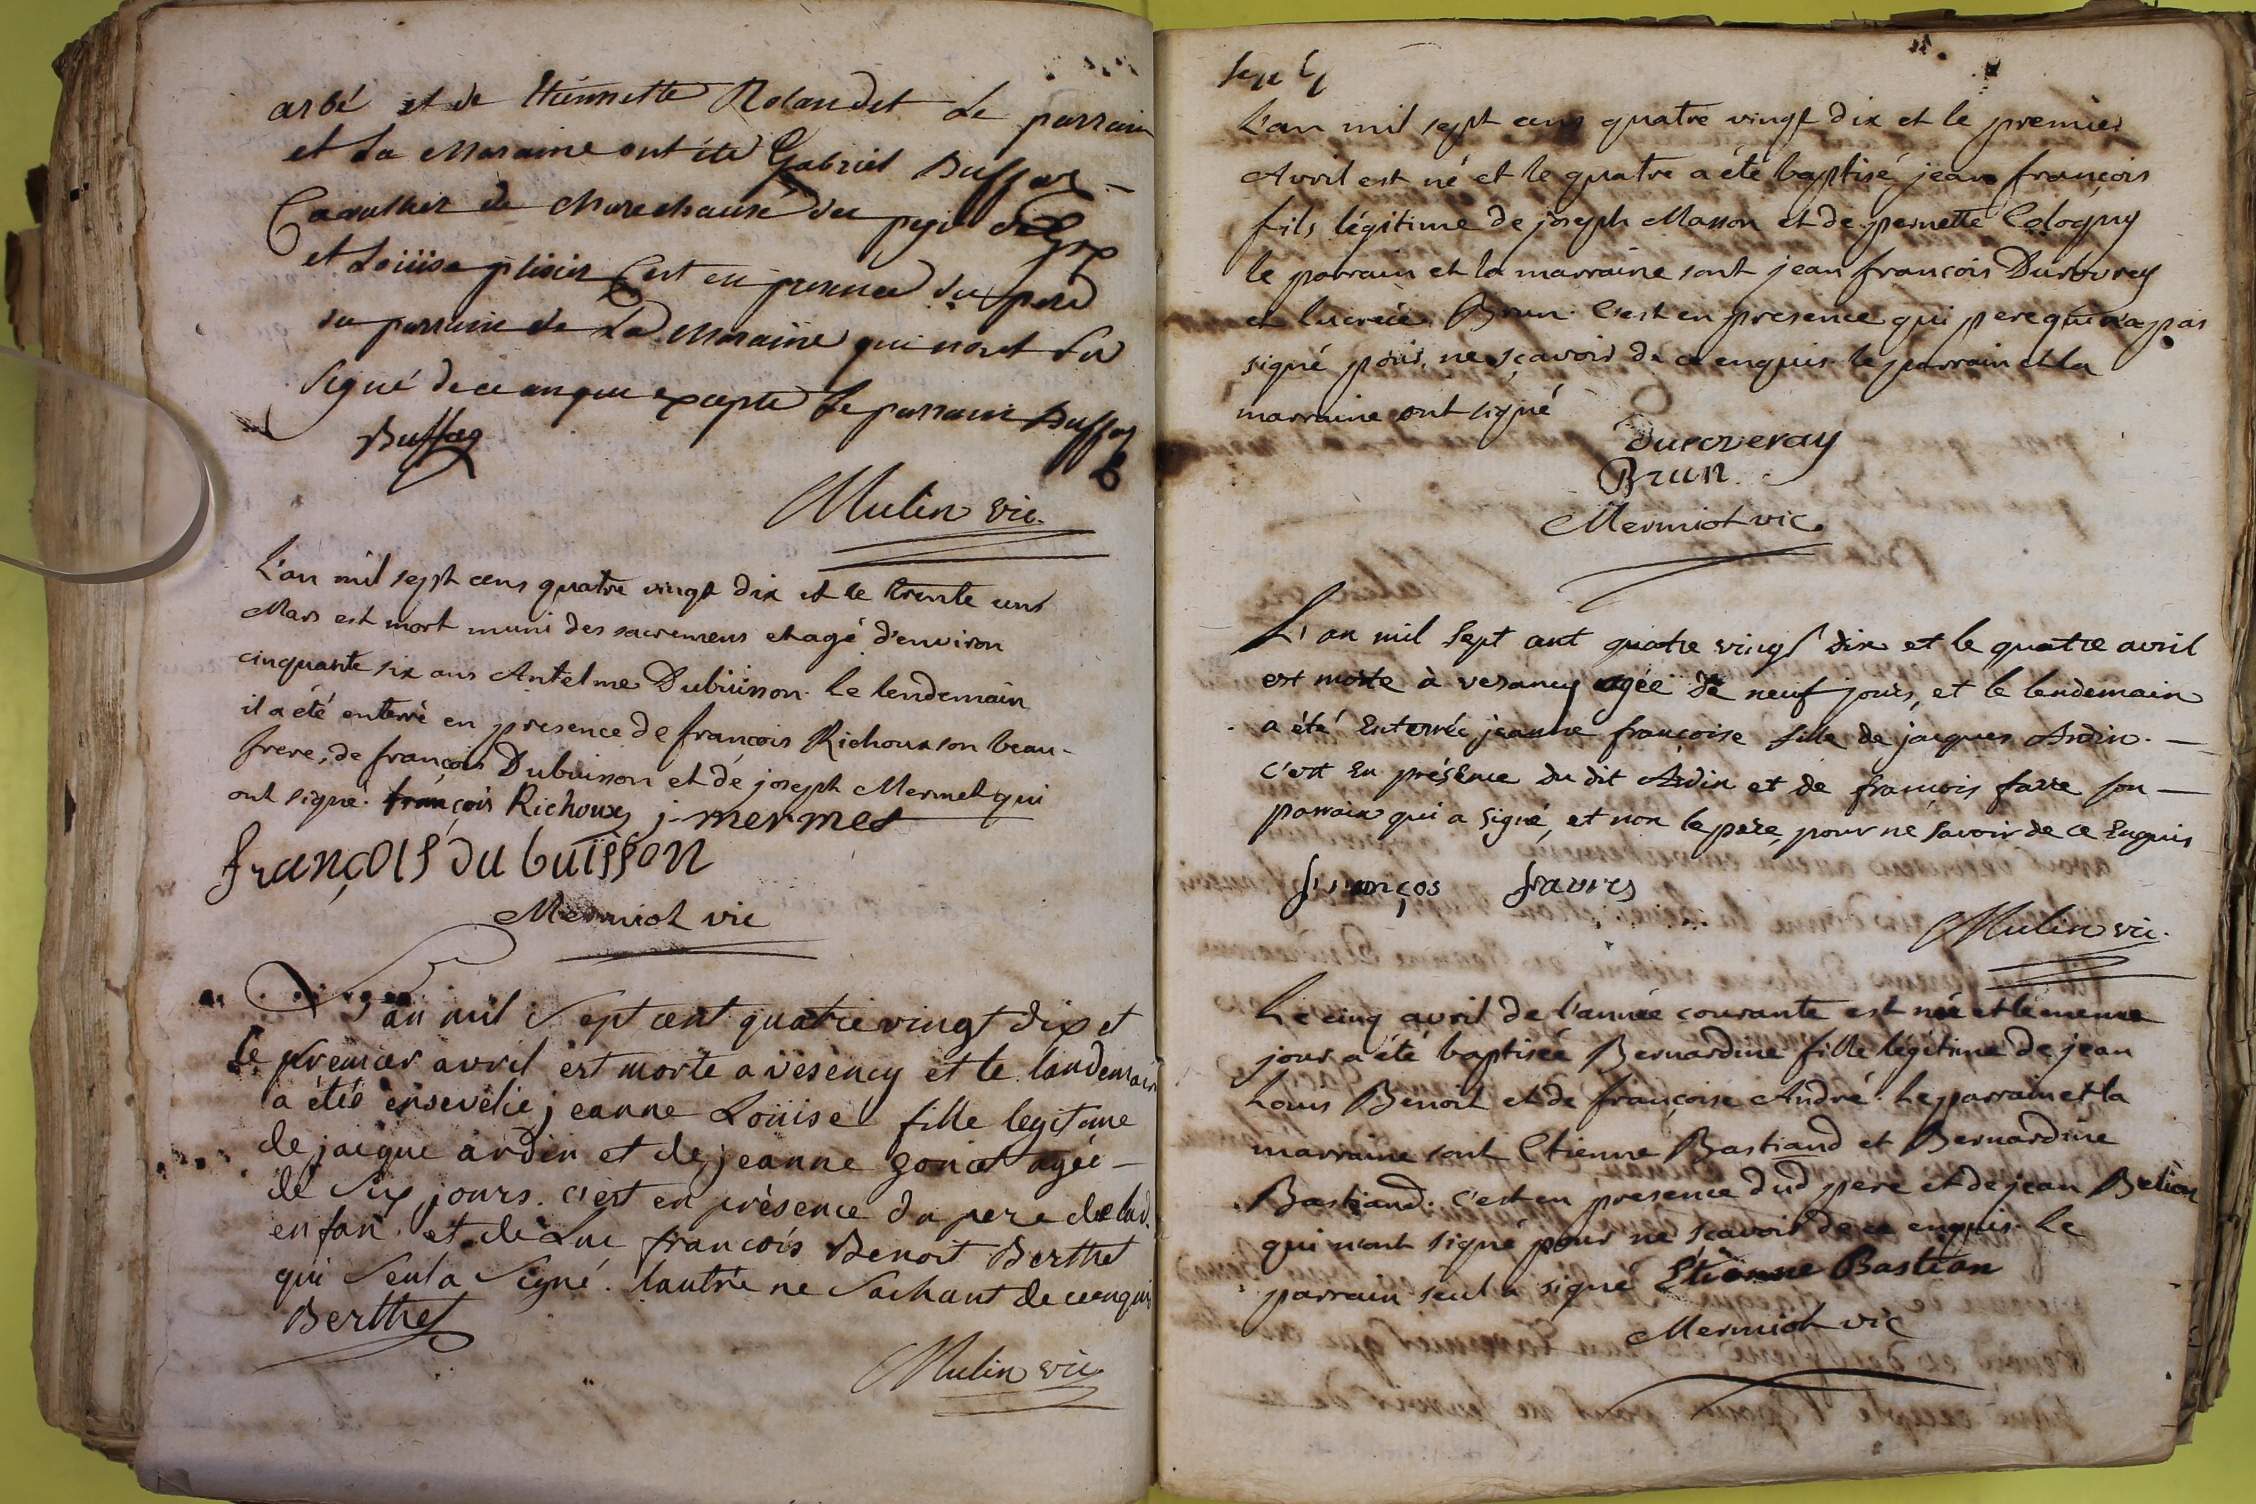 arbé et de Etiennette Rolandet Le parrain
et La Maraine ont été Gabriel Buffas
Cavallier de Marechausé du peyi de Gex
et Loüise plisier Cest en presence du pere
du parrain de La Maraine qui nont Su
Signé de ce anquie excepte Le parrain Buffas
Buffas
Mulin vic.
L'an mil sept cens quatre vingt dix et le trente uns
Mars est mort muni des sacremens et agé d'environ
cinquante six ans Antelme Dubuisson. le lendemain
il a été enterré en presence de françois Richoux son beau-
frere, de françois Dubuisson et de joseph Mermet qui
ont signé. françois Richoux j. mermet
françois du buisson
Mermiot vic
L'an mil Sept cent quatre vingt dix et
le premier avril est morte a vesency et le landemain
a étés ensevelie jeanne Loüise fille legitime
de jacque ardin et de jeanne gonet agée
de Six jours. c'est en présence du pere de lad.
enfan et de Luc françois Benoit Berthet
qui Seul a Signé. lautre ne Sachant de ce enquis
Berthet
Mulin vic
L'an mil sept cens quatre vingt dix et le premier
Avril est né et le quatre a été baptisé jean françois
fils légitime de joseph Masson et de pernette Cologny
le parrain et la marraine sont jean françois Duroveray
et lucrece Brun. C'est en presence qui pere qui n'a pas
signé pour ne sçavoir de ce enquis le parrain et la
marraine ont signé
Duroveray
Brun
Mermiot vic.
L'an mil Sept ant quatre vingt dix et le quatre avril
est morte à vesancy agée de neuf jours, et le lendemain
a été Enterrée jeanne françoise fille de jacques Ardin.
c'est En présence du dit Ardin et de françois favre son
parrain qui a signé, et non le père, pour ne savoir de ce Enquis
franços favres
Mulin vic.
Le cinq avril de l'année courante est née et le meme
jour a été baptisée Bernardine fille légitime de jean
Louis Benoit et de françoise André. Le parrain et la
marraine sont Etienne Bastiand et Bernardine
Bastiand. C'est en presence dud pere et de jean
qui n'ont signé pour ne sçavoir de ce enquis. Le
parrain seul a signé Etienne Bastian
Mermiot vic